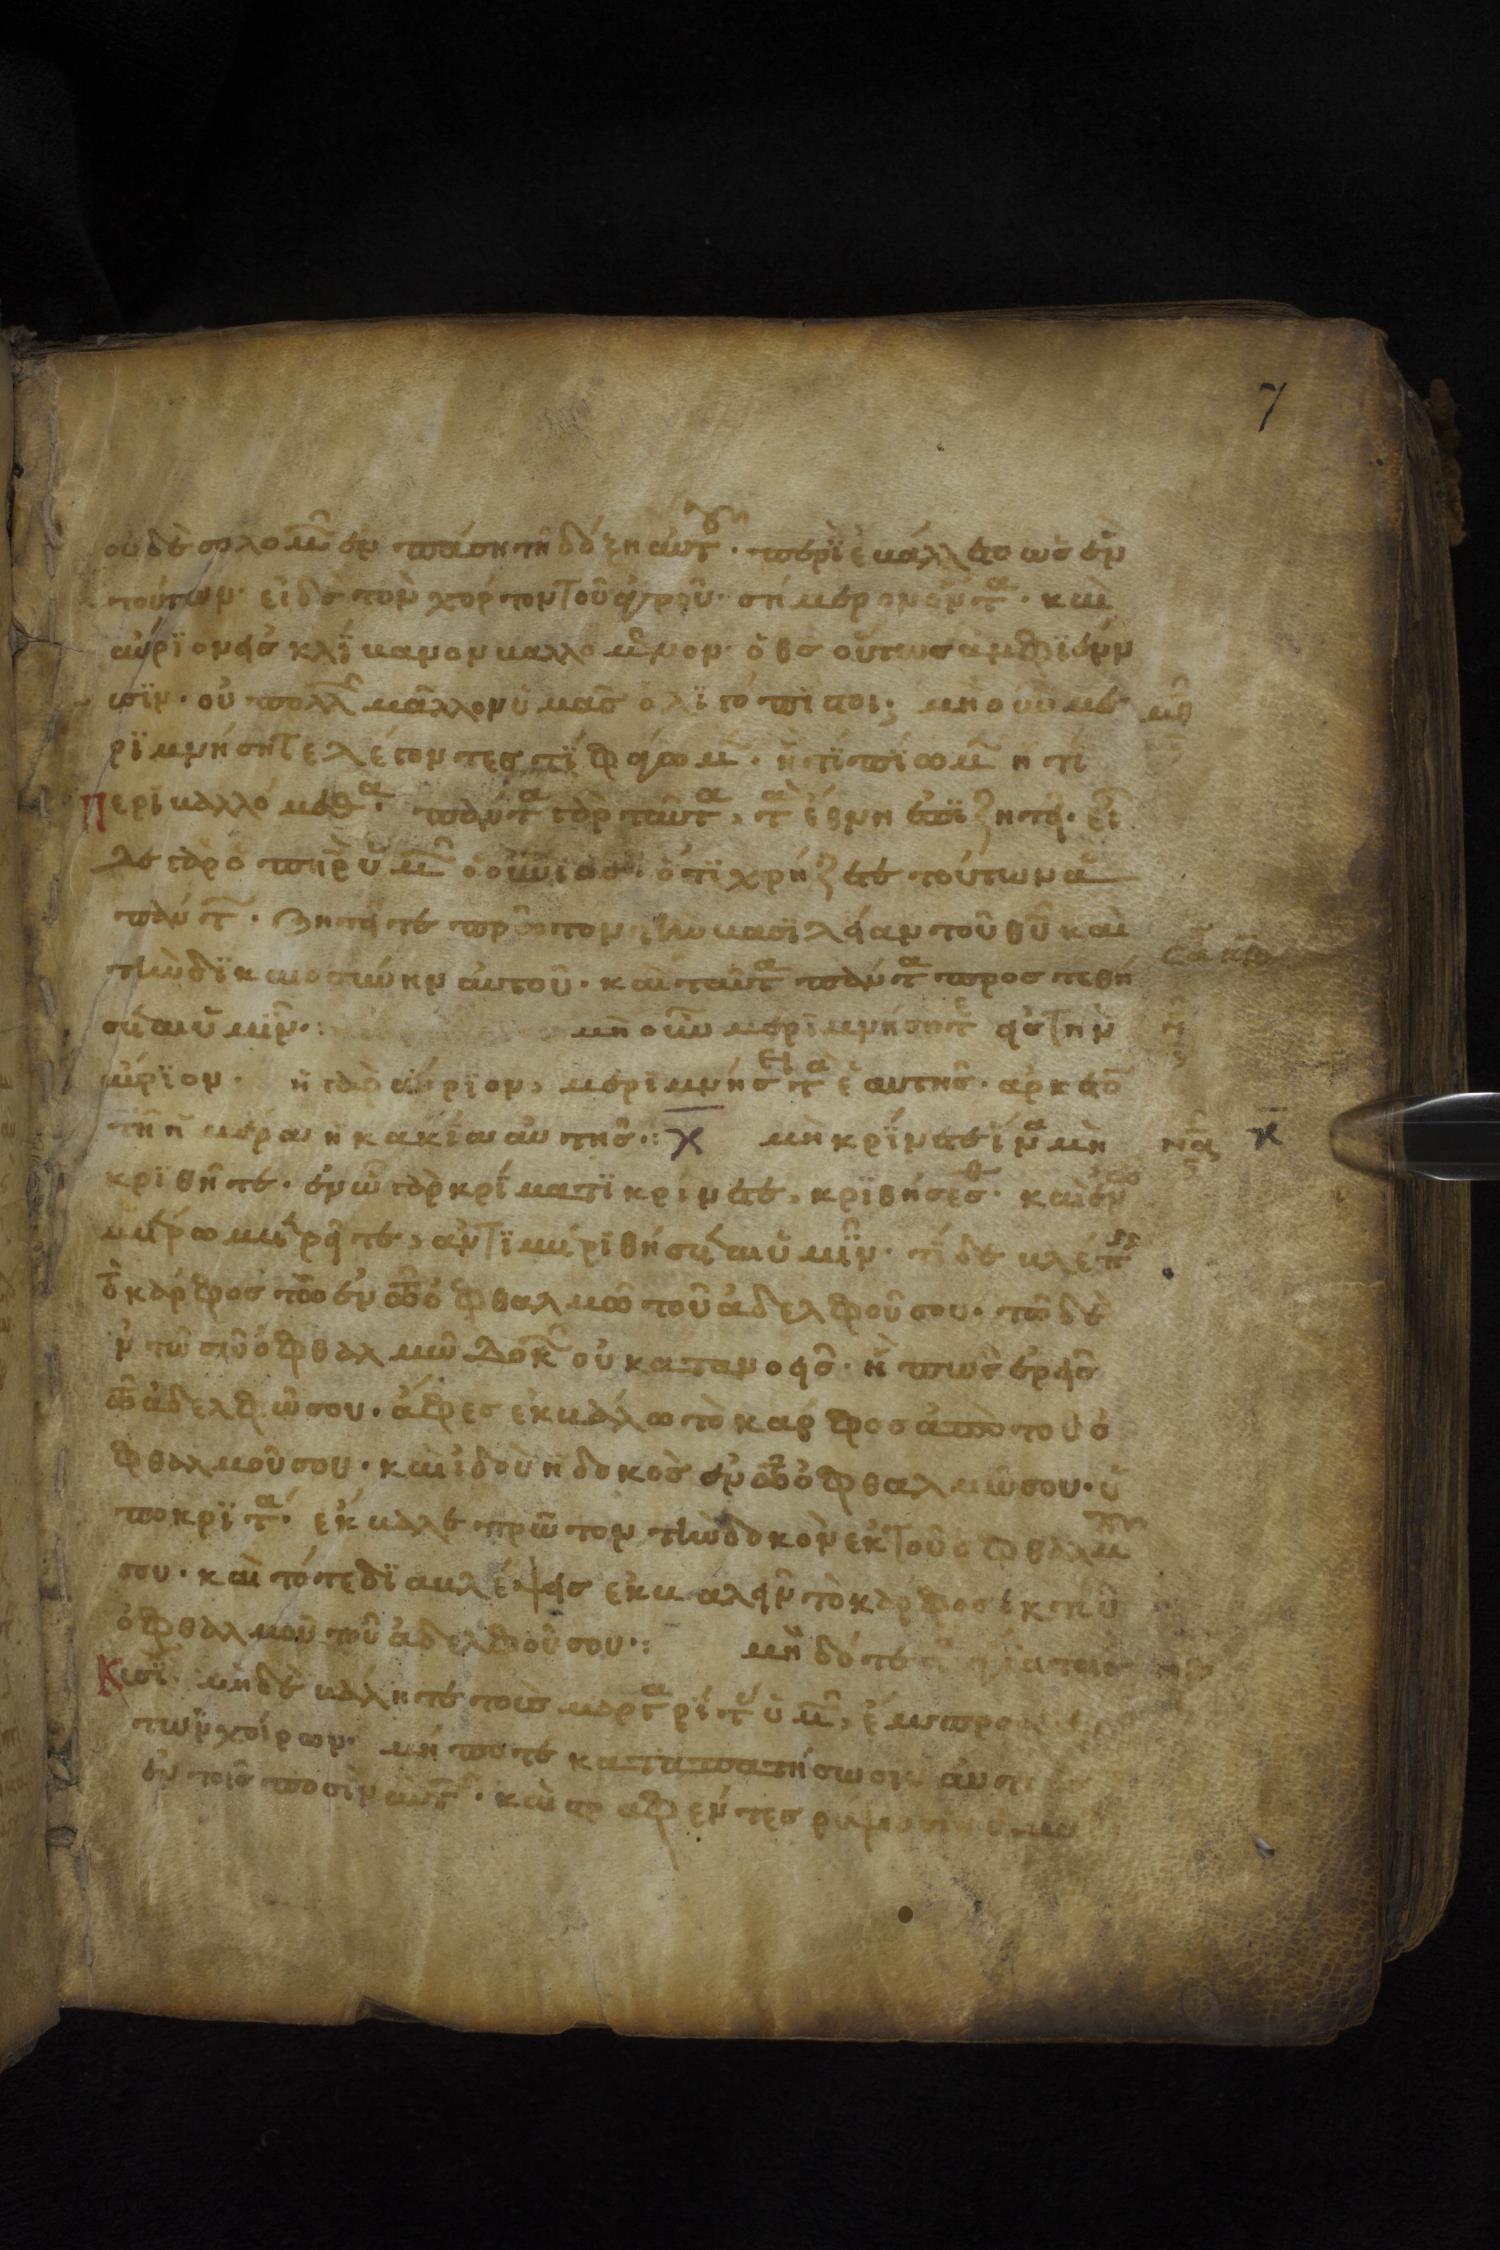 7
οὐδὲ σολομῶν ἐν πάση τῆ δόξη αὐτοῦ · περϊεβάλλετο ὡς ἓν
τούτων · εἰ δὲ τὸν χόρτον τοῦ ἀγροῦ · σήμερον ὄντα · καὶ
αὔρϊον εἰς κλΐβανον βαλλόμενον · ὁ θσ οὕτωσ ἀμφϊέννυ
σϊν · οὐ πολλῶ μᾶλλον ὑμᾶς ὀλϊγόπιστοι; μὴ οὖν με
ρϊμνήσητε λέγοντες τΐ φάγωμεν · ἢ τΐ πΐωμεν ἢ τί
Περιβαλλόμεθα · πάντα γὰρ ταῦτα, τὰ ἔθνη ἐπϊζητεῖ · οἶ
δε γὰρ ὁ πηρ ὑμῶν ὁ οὐνιος · ὅτϊ χρήζετε τούτων ἁ
πάντων · ζητεῖτε πρῶτον τὴν βασϊλείαν τοῦ θυ καὶ
τὴν δϊκαιοσύνην αὐτοῦ · καὶ ταῦτα πάντα προστεθή
σεται ὑμῖν · : μὴ οὖν μερϊμνήσητε εἰς τὴν
αὔρϊον · ἡ γὰρ αὔρϊον, μερϊμνήσει τὰ ἑαυτῆς · ἀρκετὸν
τῆ ἡμέρα ἡ κακία αὐτῆς · : μὴ κρΐνετε ἵνα μὴ
κρϊθῆτε · ἐν ὧ γὰρ κρίματϊ κρίνετε, κρϊθήσεσθε · καὶ ἐν ὧ
μέτρω μετρεῖτε, ἀντϊμετρϊθήσεται ὑμῖν · τί δὲ βλέπεις
τὸ κάρφος τὸ ἐν τῶ ὀφθαλμῶ τοῦ ἀδελφοῦ σου · τὴν δὲ
ἐν τῶ σῶ ὀφθαλμῶ δοκὸν οὐ κατανοεῖς · ἢ πῶς ἐρεῖς
τῶ ἀδελφῶ σου · ἄφες ἐκβάλω τὸ κάρφος ἀπὸ τοῦ ὀ
φθαλμοῦ σου · καὶ ἰδοὺ ἡ δοκὸς ἐν τῶ ὀφθαλμῶ σου · ὑ
ποκρϊτά · ἔκβαλε πρῶτον τὴν δοκὸν ἐκ τοῦ ὀφθαλμοῦ
σου · καὶ τότε δϊαβλέψεις ἐκβαλεῖν τὸ κάρφος ἐκ τοῦ
ὀφθαλμοῦ τοῦ ἀδελφοῦ σου · : μὴ δότε
Κυσΐ · μηδὲ βάλητε τοὺς μαργαρΐτας ὑμῶν, ἔμπροσθεν
τῶν χοίρων · μή ποτε καταπατήσωσιν αὐτοὺς
ἐν τοῖς ποσὶν αὐτῶν · καὶ στραφέντες ῥήξωσιν ὑμᾶς